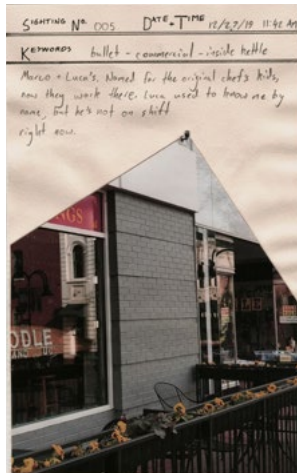 SIGHTING Nº 005 DATE + TIME 12/27/19 11:42 AM
KEYWORDS bullet - commercial - inside kettle
Marco + Luca's. Named for the original chef's kids,
now they work there. Luca used to know me by
name, but he's not on shift
right now.
NGS
ODLE
AND